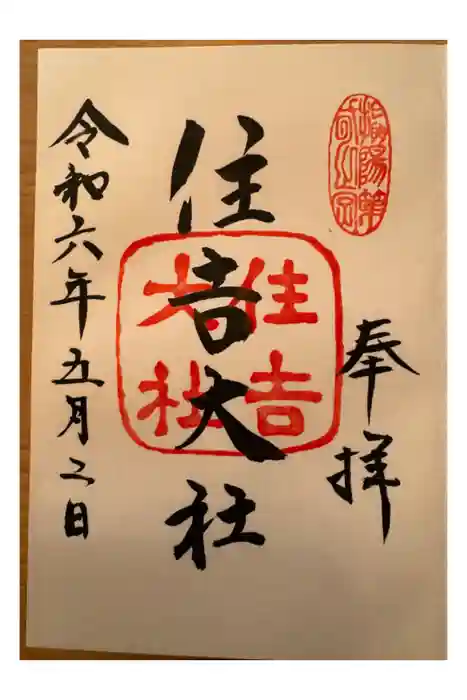 奉拝
住吉大社
住吉
大社
令和六年五月二日